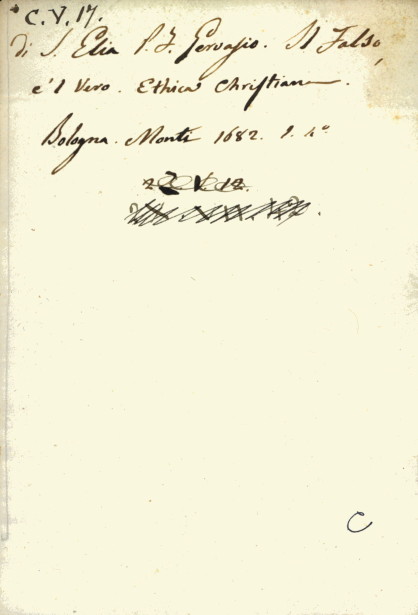 C. V. 17.
di S. Elia P. F. Gervasio. Il Falso,
e'l Vero. Ethica Christiana.
Bologna. Monti 1682. 4°
C